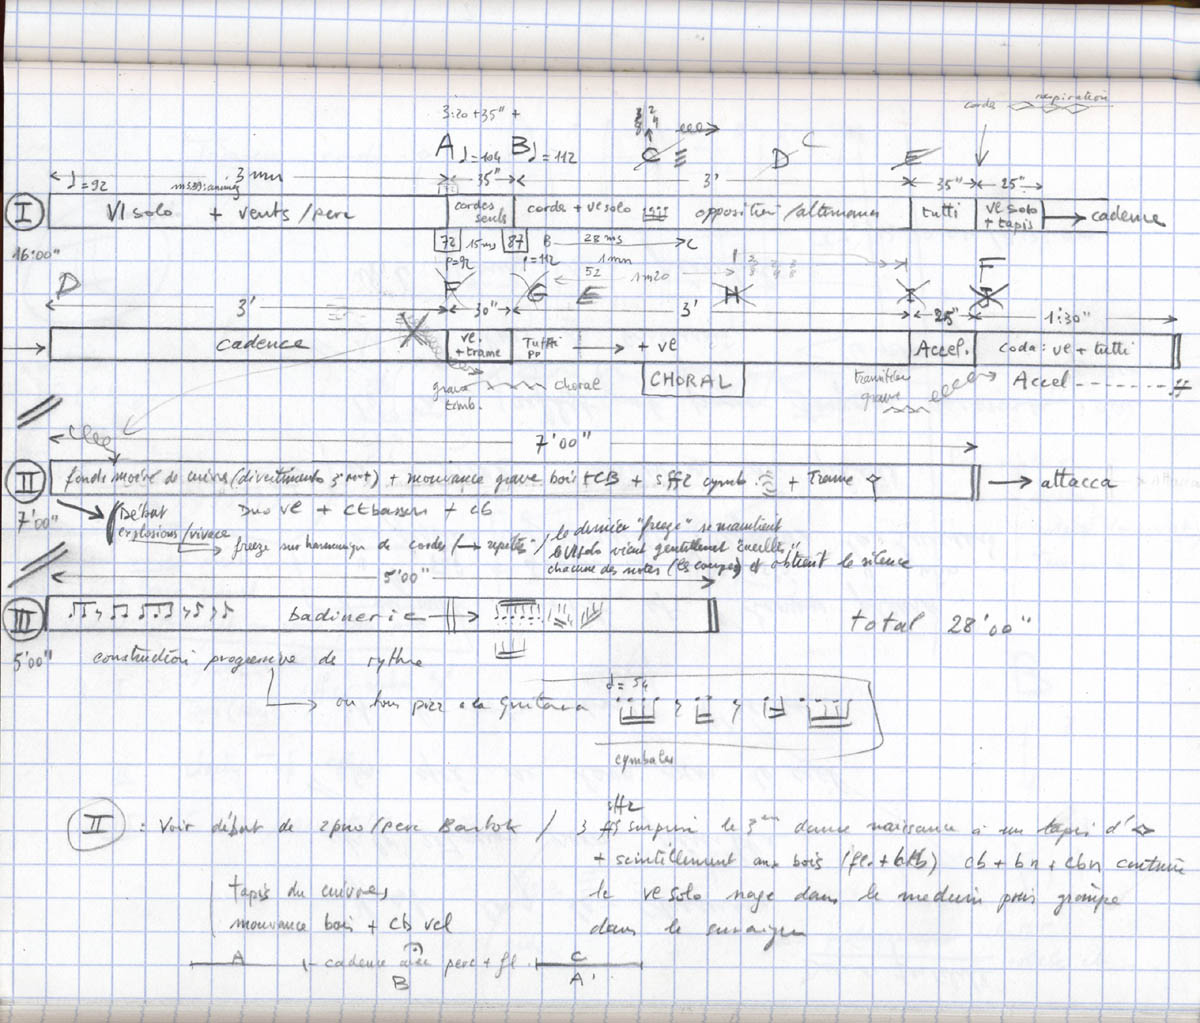 corde respiration
3:20 + 35" +
A ♩=104 B ♩=112 C D C E
♩=92 3 mn 35" 3' 35" 25"
I Vl solo + vents / perc cordes seuls corde + ve solo opposition / alternance tutti ve solo + tapis cadence
16:00" 72 15 ms 87 B 28 ms C
♩=92 ♩=112 1 mn
52 1 m 20
D F G E H I F J
3' 30" 3' 25" 1:30"
cadence ve. + trame Tutti pp + ve Accel. coda : ve + tutti
grave timb. choral CHORAL transition grave Accel ff
7'00"
II + mouvance grave bois + CB + sffz cymb. + Trame attacca
7'00" Début Duo ve + Ctbasson + cb
explosions / vivace le dernier "freeze" se maintient
freeze sur harmonique de cordes / répétés / le Vl solo vient gentiment "cueillir"
chacune des notes (les coupe) et obtient le silence
5'00"
III badinerie total 28'00"
5'00" construction progressive de rythme
ou tous pizz a la Guitara ♩=54
cymbales
sffz
II : Voir début de 2 pno / perc Bartok / 3 ff surprise le 3em donne naissance à un tapis d'
+ scintillement aux bois cb + bn + cbn continue
tapis du cuivres le ve solo nage dans le medium puis grimpe
mouvance bois + cb vcl dans le suraigu
A cadence avec perc + fl C
B A'